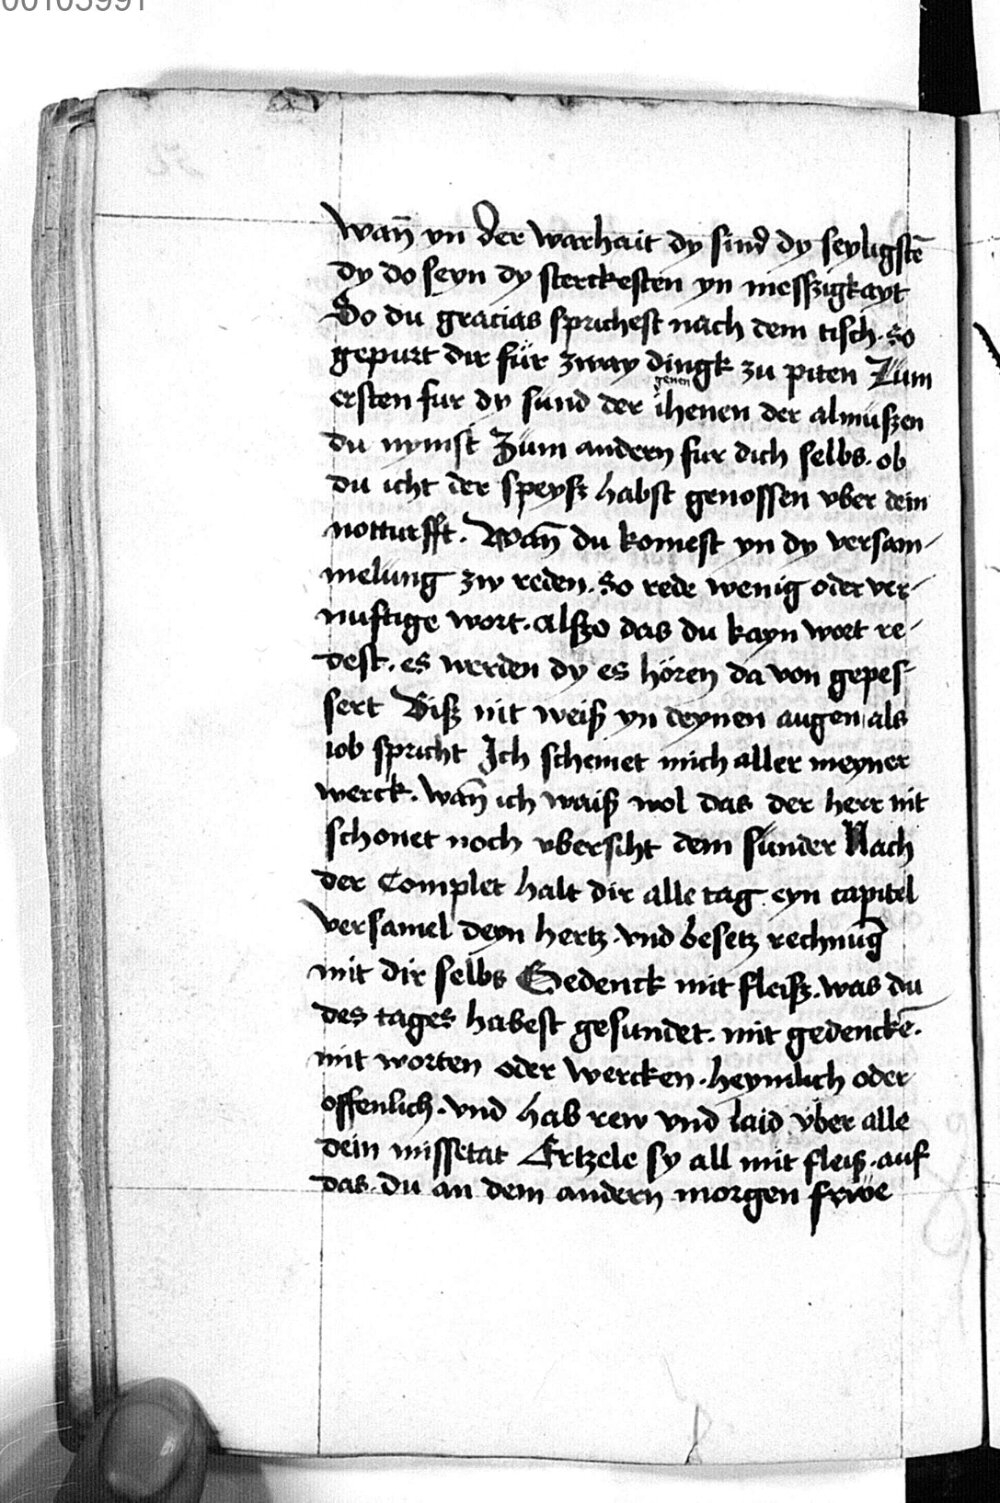 00103991
wan̄ yn der warhait dy sind dy seyligstē
dy do seyn dy sterckesten yn messzigkayt
So du gracias sprichest nach dem tisch. so
gepurt dir für zway dingk zu piten Züm
ersten fur dy sund der ihenen der almüszen
genen
du nymst Züm andern fur dich selbs. ob
du icht der speysz habst genossen vber dein
notturfft. Wan̄ du komest yn dy versam-
melung zw reden. so rede wenig oder ver-
nuftige wort. alszo das du kayn wort re-
dest. es werden dy es hören da von gepes-
sert Bisz nit weiß yn deynen augen als
iob spricht Ich schemet mich aller meyner
werck. wan̄ ich waiß wol das der herr nit
schonet noch vbersiht dem sünder Nach
der Complet halt dir alle tag eyn capitel
versamel deyn hertz. vnd besetz rechnūg
mit dir selbs Gedenck mit fleisz. was du
des tages habest gesundet. mit gedenckē.
mit worten oder wercken. heymlich oder
offenlich. vnd hab rew vnd laid vber alle
dein missetat Ertzele sy all mit fleisz. auf
das. du an dem andern morgen frwe